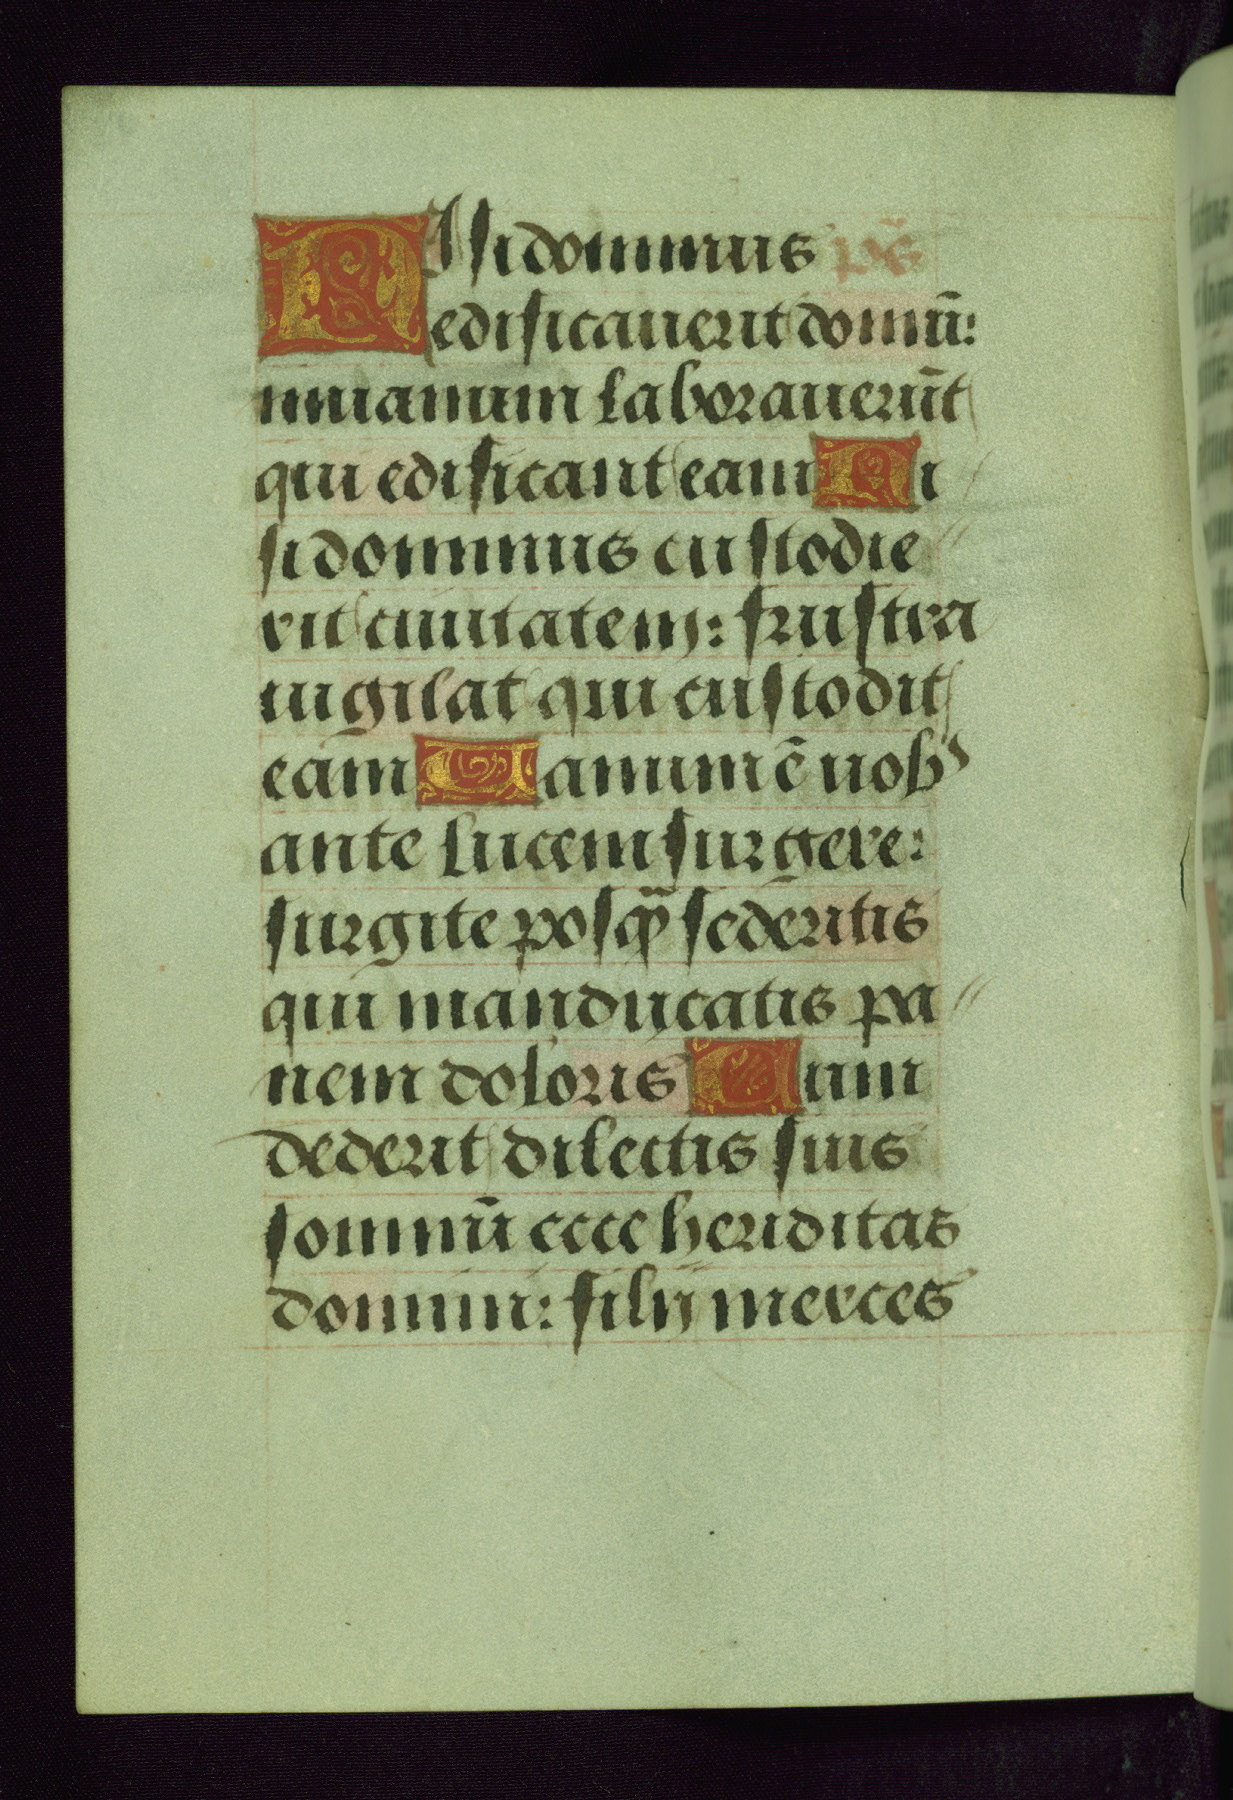 NI si dominus pſ̄
edificauerit domū:
inuanum laborauerūt
qui edificant eam Ni
si dominus custodie
rit ciuitatem: frustra
uigilat qui custodit
eam Uanum ē uob
ante lucem surgere:
surgite posq̄ sederitis
qui manducatis pa
nem doloris Cum
dederit dilectis suis
somnū ecce heriditas
domini: filij merces